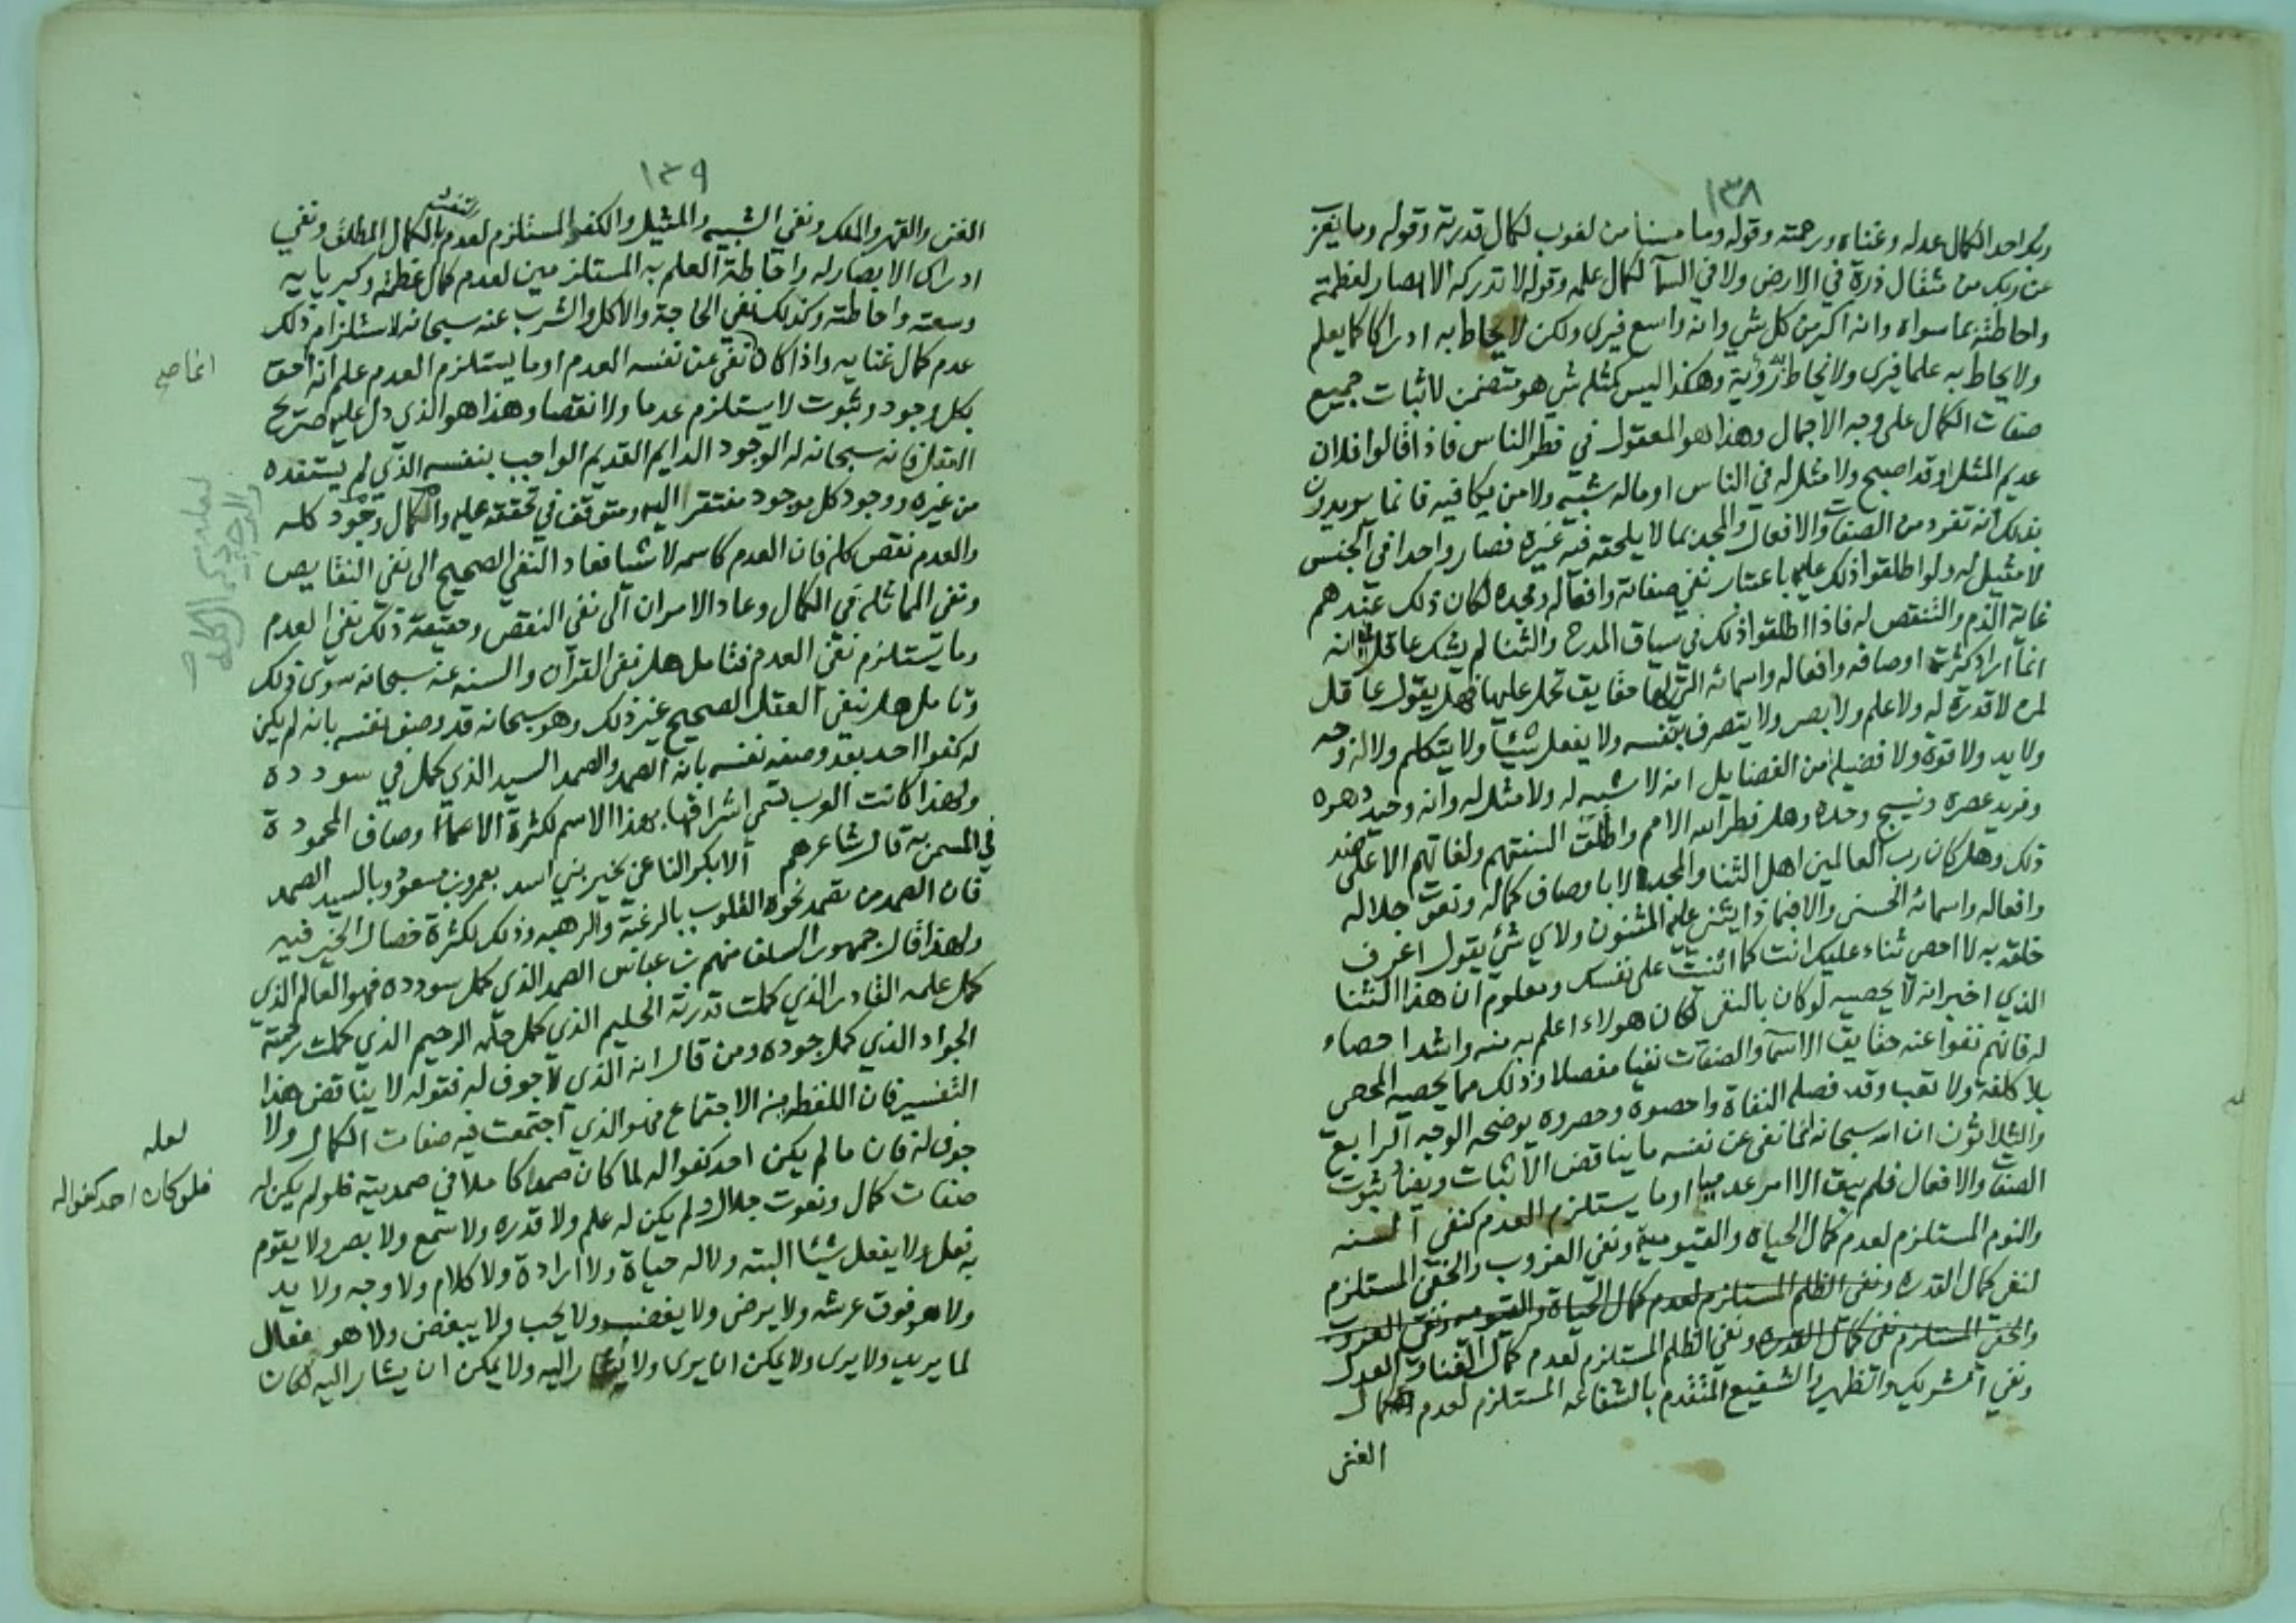 ١٣٨
ربك احدا لكمال عدله وغناه ورحمته وقوله وما مسنا من لغوب لكمال قدرته وقوله وما يعزب
عن ربك من مثقال ذرة في الارض ولا في السما لكمال علمه وقوله لا تدركه الابصار لعظمته
واحاطته بما سواه وانه اكبر من كل شي وانه واسع فيرى ولكن لا يحاط به ادراكا كما يعلم
ولا يحاط به علما فيرى ولا يحاط به رؤية وهكذا ليس كمثله شي هو متضمن لاثبات جميع
صفات الكمال على وجه الاجمال وهذا هو المعقول في فطر الناس فاذا قالوا فلان
عديم المثل او قد اصبح ولا مثل له في الناس او ماله شبيه ولا من يكافيه فانما يريدون
بذلك انه تفرد من الصفات والافعال والمجد بما لا يلحقه فيه غيره فصار واحدا في الجنس
لا مثيل له ولو اطلقوا ذلك عليه باعتبار نفي صفاته وافعاله ومجده لكان ذلك عندهم
غاية الذم والتنقص له فاذا اطلقوا ذلك في سياق المدح والثنا لم يشك عاقل في انه
انما اراد كثرة اوصافه وافعاله واسمائه التي لها حقايق تحمل عليها فهل يقول عاقل
لمن لا قدرة له ولا علم ولا بصر ولا يتصرف بنفسه ولا يفعل شيئا ولا يتكلم ولا له وجه
ولا يد ولا قوة ولا فضيلة من الفضايل انه لا شبيه له ولا مثل له وانه وحيد دهره
وفريد عصره ونسيج وحده وهل فطر الله الامم واطلق السنتهم ولغاتهم الا على ضد
ذلك وهل كان رب العالمين اهل الثنا والمجد الا باوصاف كماله ونعوت جلاله
وافعاله واسمائه الحسنى والا فبماذا يثني عليه المثنون ولاي شي يقول اعرف
خلقه به لا احصي ثناء عليك انت كما اثنيت على نفسك ومعلوم ان هذا الثنا
الذي اخبر انه لا يحصيه لو كان بالنفي لكان هولاء اعلم به منه واشد احصاء
له فانهم نفوا عنه حقايق الاسما والصفات نفيا مفصلا وذلك مما يحصيه المحصي
بلا كلفة ولا تعب وقد فصله النفاة واحصوه وحصروه يوضحه الوجه الرابع
والثلاثون ان الله سبحانه انما نفى عن نفسه ما يناقض الاثبات ويضاد ثبوت
الصفات والافعال فلم يبق الا امر عدميا او ما يستلزم العدم كنفي السنه
والنوم المستلزم لعدم كمال الحياة والقيومية ونفي العزوب والخفي المستلزم
لنفي كمال القدره ونفي الظلم المستلزم لعدم كمال الحياة والقيوميه ونفي العزوب
والخفي المستلزم نفي كمال القدره ونفي الظلم المستلزم لعدم كمال الغنا والعدل
ونفي الشريك والظهير والشفيع المتقدم بالشفاعه المستلزم لعدم كمال
الغنى
١٣٩
الغنى والقهر والملك ونفي الشبيه والمثيل والكفو المستلزم لعدم بالكمال المطلق ونفي
ادراك الابصار له واحاطة العلم به المستلزمين لعدم كمال عظمته وكبريايه
وسعته واحاطته وكذلك نفي الحاجة والاكل والشرب عنه سبحانه لاستلزام ذلك
عدم كمال غنايه واذا كان نفي عن نفسه العدم او ما يستلزم العدم علم انه احق
بكل وجود وثبوت لا يستلزم عدما ولا نقصا وهذا هو الذي دل عليه صريح
العقل فانه سبحانه له الوجود الدايم القديم الواجب بنفسه الذي لم يستفده
من غيره ووجود كل موجود مفتقر اليه ومتوقف في تحققه عليه والكمال وجود كله
والعدم نقص كله فان العدم كاسمه لا شيا فعاد النفي الصحيح الى نفي النقايص
ونفي المماثلة في الكمال وعاد الامران الى نفي النقص وحقيقة ذلك نفي العدم
وما يستلزم نفي العدم فتامل هل نفى القرآن والسنه عنه سبحانه سوى ذلك
وتامل هل ينفي العقل الصحيح غير ذلك وهو سبحانه قد وصف نفسه بانه لم يكن
له كفوا احد بعد وصفه نفسه بانه الصمد والصمد السيد الذي كمل في سودده
ولهذا كانت العرب تسمي اشرافها بهذا الاسم لكثرة الاوصاف المحمودة
في المسمى به قال شاعرهم الا بكر الناعي بخير بني اسد بعمرو بن مسعود وبالسيد الصمد
فان الصمد من تصمد نحوه القلوب بالرغبة والرهبه وذلك لكثرة خصال الخير فيه
ولهذا قال جمهور السلف منهم بن عباس الصمد الذي كمل سودده فهو العالم الذي
كمل علمه القادر الذي كملت قدرته الحليم الذي كمل حلمه الرحيم الذي كملت رحمته
الجواد الذي كمل جوده ومن قال انه الذي لا جوف له فقوله لا يناقض هذا
التفسير فان اللفظه من الاجتماع فهو الذي اجتمعت فيه صفات الكمال ولا
جوف له فان ما لم يكن احد كفوا له لما كان صمدا كاملا في صمديته فلو لم يكن له
صفات كمال ونعوت جلال ولم يكن له علم ولا قدره ولا سمع ولا بصر ولا يقوم
به فعل ولا يفعل شيئا البته ولا له حياة ولا ارادة ولا كلام ولا وجه ولا يد
ولا هو فوق عرشه ولا يرضى ولا يغضب ولا يحب ولا يبغض ولا هو فعال
لما يريد ولا يرى ولا يمكن ان يرى ولا يشار اليه ولا يمكن ان يشار اليه لكان
لعله
فلو كان احد كفوا له